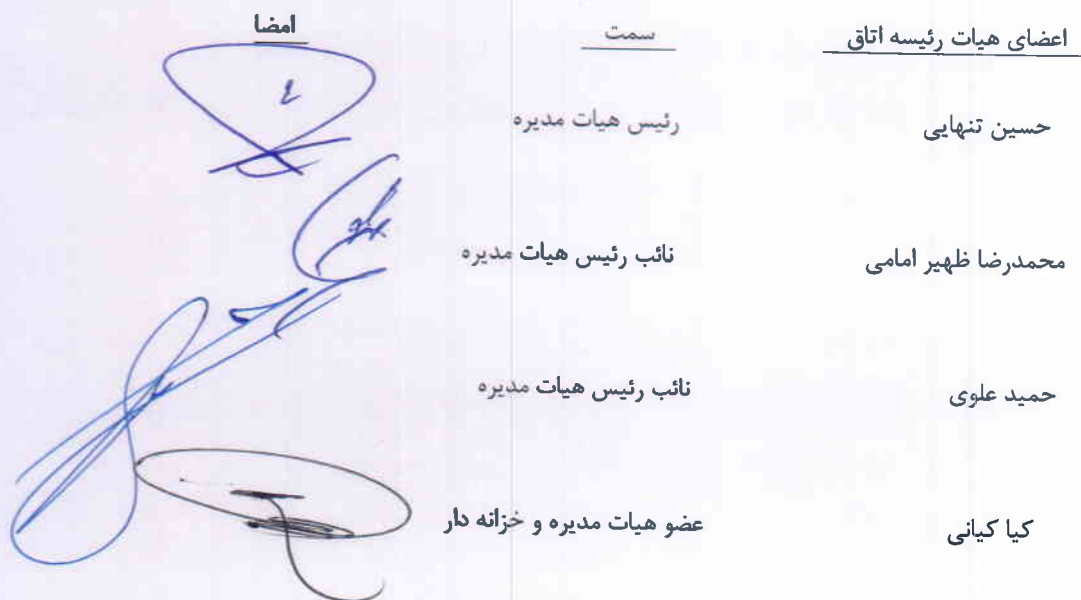 اعضای هیات رئیسه اتاق سمت امضا
حسین تنهایی رئیس هیات مدیره
محمدرضا ظهیر امامی نائب رئیس هیات مدیره
حمید علوی نائب رئیس هیات مدیره
کیا کیانی عضو هیات مدیره و خزانه دار